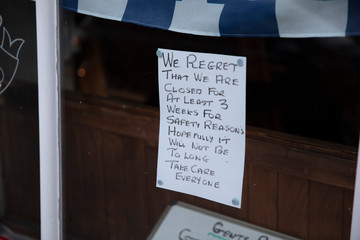 We Regret
That We Are
Closed For
At Least 3
Weeks For
Safety Reasons
Hopefully It
Will Not Be
To Long
Take Care
Everyone
Gents